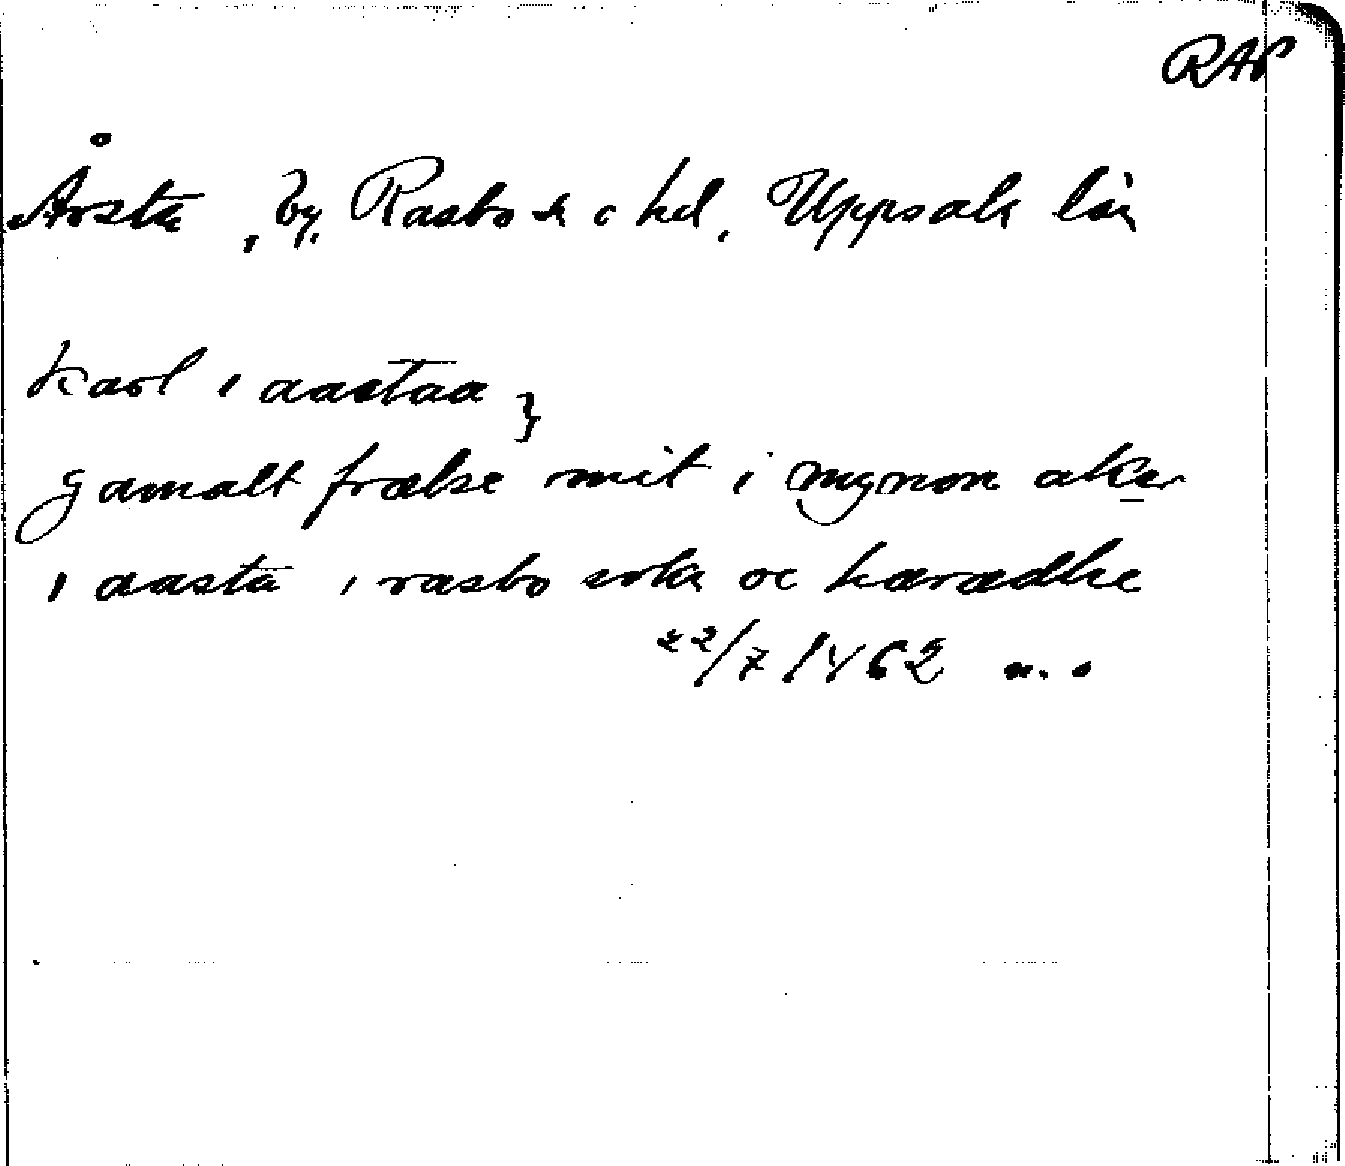 RAP
Årsta, by, Rasbo sn o hd. Uppsala län
karl i aastaa }
gamalt frælse mit i mynon aker
i aasta i rasbo sokn oc hæradhe
22/7 1462 n. o